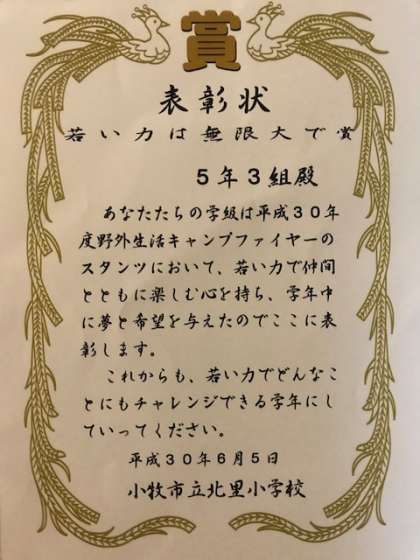 賞
表彰状
若い力は無限大で賞
５年３組殿
あなたたちの学級は平成３０年
度野外生活キャンプファイヤーの
スタンツにおいて、若い力で仲間
とともに楽しむ心を持ち、学年中
に夢と希望を与えたのでここに表
彰します。
これからも、若い力でどんなこ
とにもチャレンジできる学年にし
ていってください。
平成３０年６月５日
小牧市立北里小学校